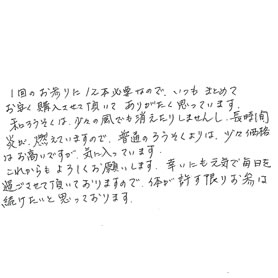 1回のお参りに12本必要なので、いつもまとめて
お安く購入させて頂いてありがたく思っています。
和ろうそくは、少々の風でも消えたりしませんし、長時間
炎が、燃えていますので、普通のろうそくよりは、少々価格
はお高いですが、気に入っています。
これからもよろしくお願いします。幸いにも元気で毎日を
過ごさせて頂いておりますので、体が許す限りお参は
続けたいと思っております。